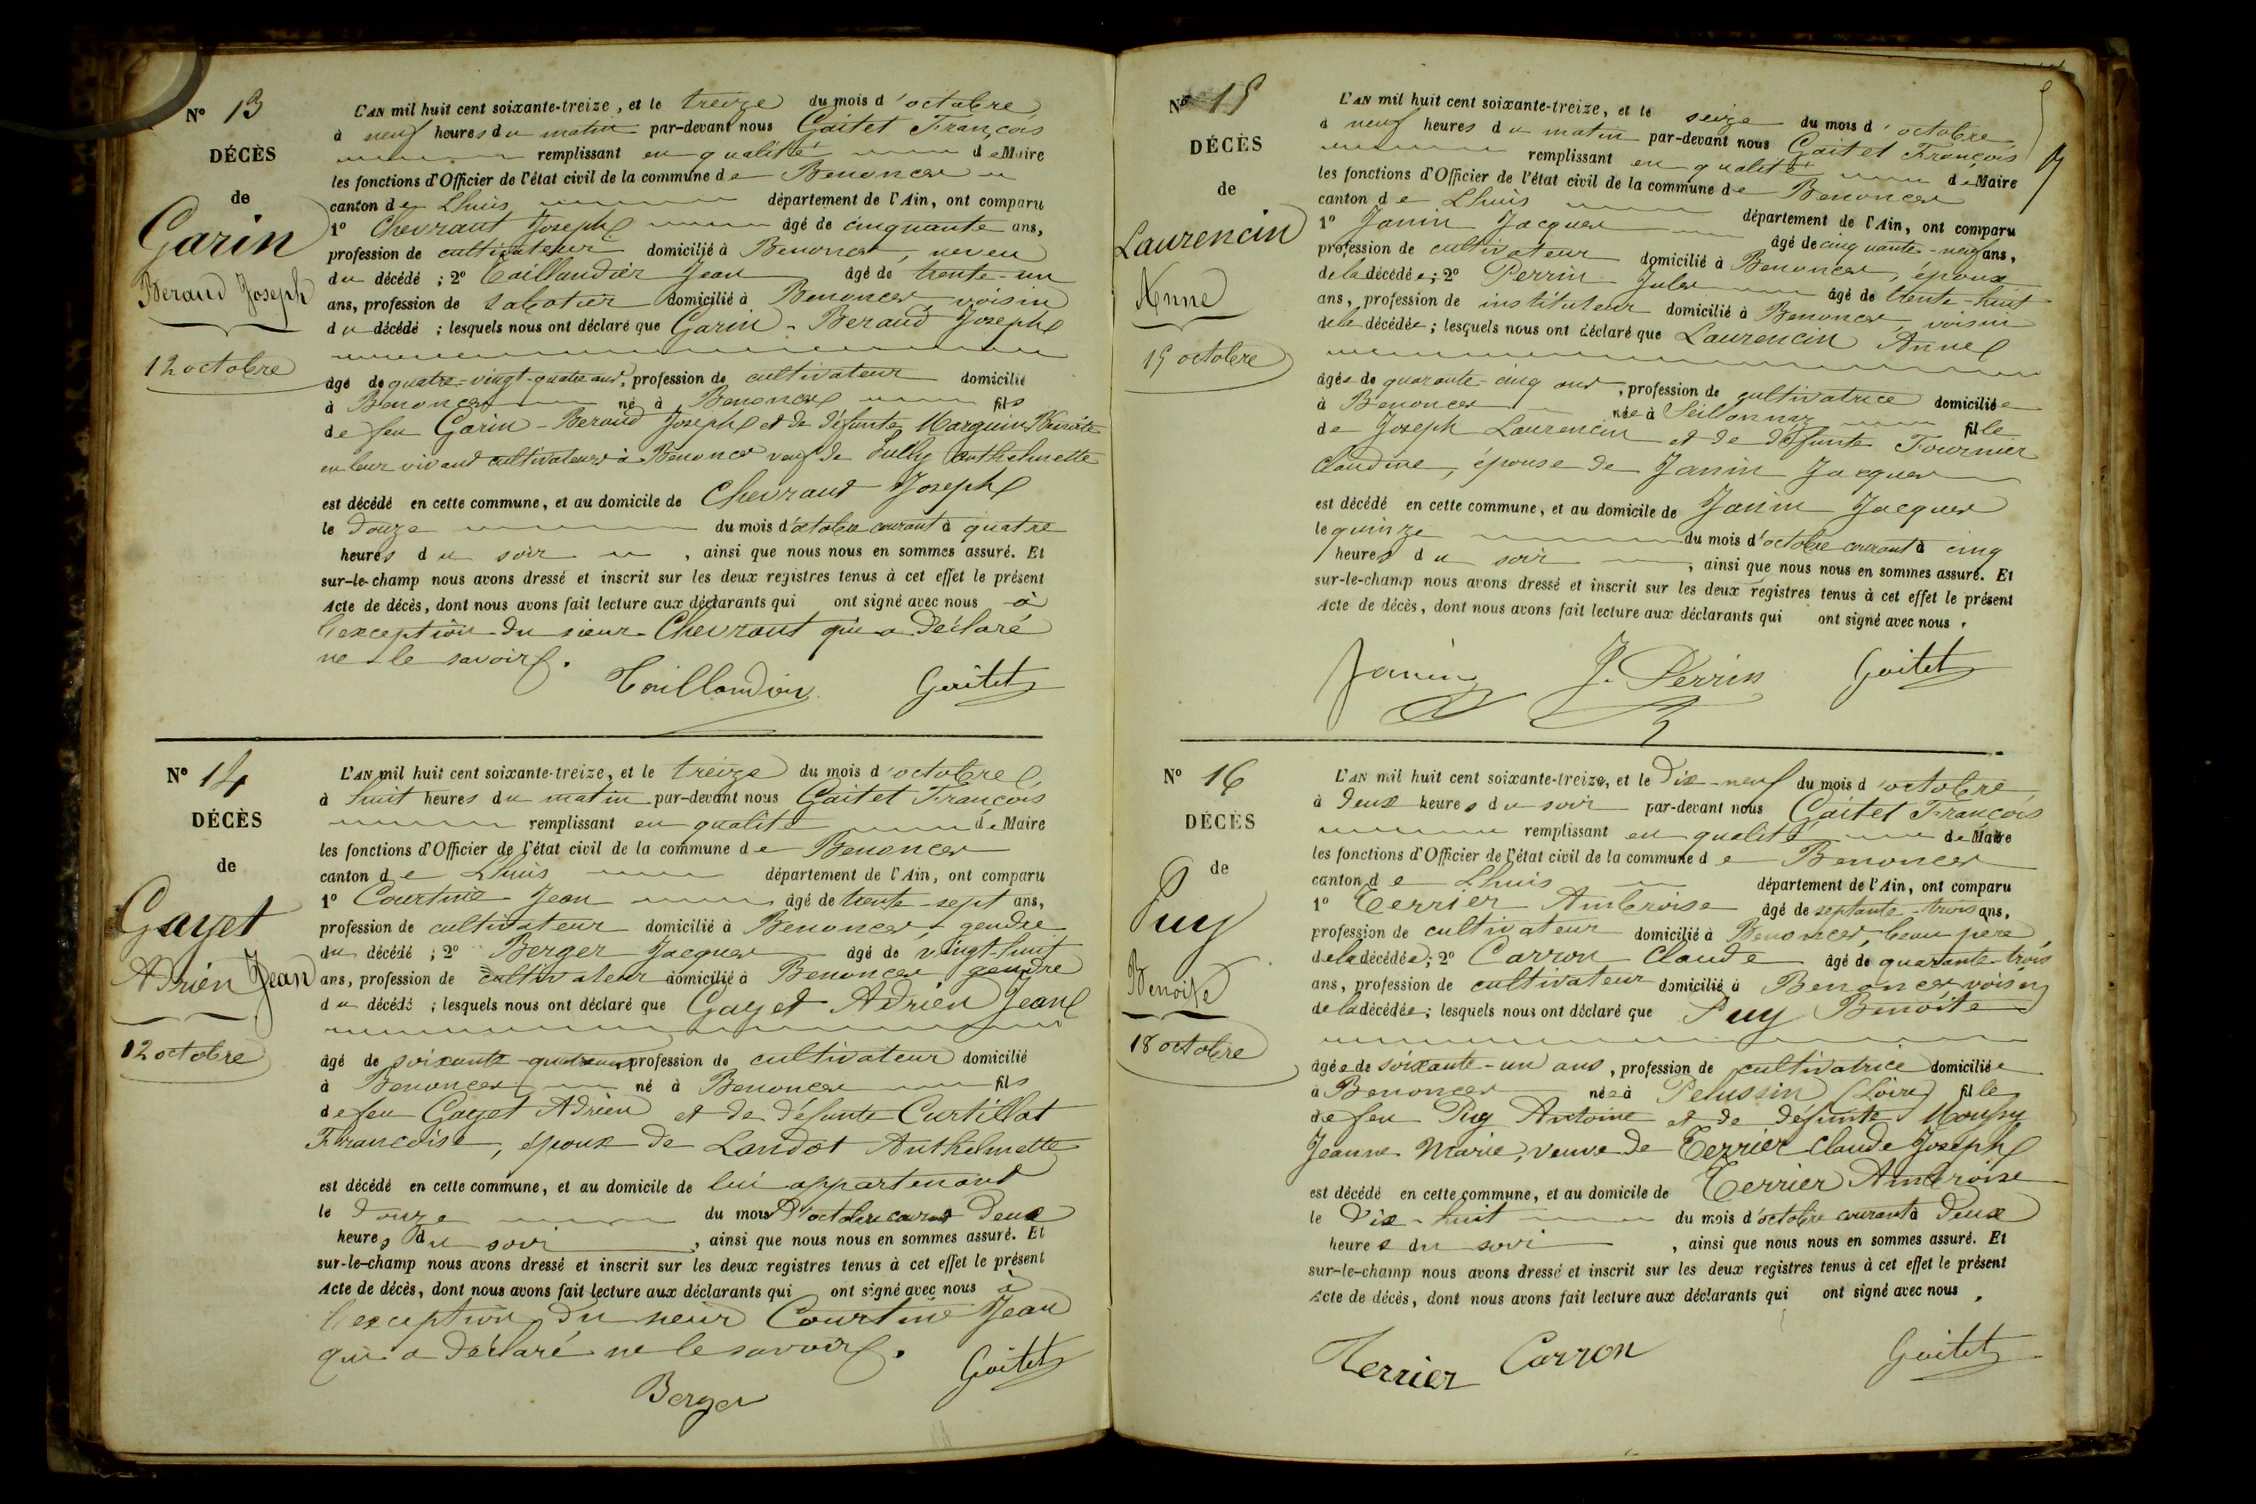 N° 13
DÉCÈS
de
Garin
Beraud Joseph
12 octobre
L'AN mil huit cent soixante-treize, et le treize du mois d'octobre
à neuf heures du matin par-devant nous Gaitet François
remplissant en qualité de Maire
les fonctions d'Officier de l'état civil de la commune de Benonces
canton de Lhuis département de l'Ain, ont comparu
1° Chevraut Joseph âgé de cinquante ans,
profession de cultivateur domicilié à Benonces, neveu
du décédé ; 2° Taillandier Jean âgé de trente-un
ans, profession de sabotier domicilié à Benonces, voisin
du décédé ; lesquels nous ont déclaré que Garin-Beraud Joseph
âgé de quatre-vingt-quatre ans, profession de cultivateur domicilié
à Benonces né à Benonces fils
de feu Garin-Beraud Joseph et de défunte Marguin
en leur vivant cultivateurs à Benonces veuf de Anthelmette
est décédé en cette commune, et au domicile de Chevraut Joseph
le douze du mois d'octobre courant à quatre
heures du soir, ainsi que nous nous en sommes assuré. Et
sur-le-champ nous avons dressé et inscrit sur les deux registres tenus à cet effet le présent
Acte de décès, dont nous avons fait lecture aux déclarants qui ont signé avec nous à
l'exception du sieur Chevraut qui a déclaré
ne le savoir.
Taillandier Gaitet
N° 14
DÉCÈS
de
Gayet
Adrien Jean
12 octobre
L'AN mil huit cent soixante-treize, et le treize du mois d'octobre
à huit heures du matin par-devant nous Gaitet François
remplissant en qualité de Maire
les fonctions d'Officier de l'état civil de la commune de Benonces
canton de Lhuis département de l'Ain, ont comparu
1° Courtine Jean âgé de trente-sept ans,
profession de cultivateur domicilié à Benonces, gendre
du décédé ; 2° Berger Jacques âgé de vingt-huit
ans, profession de cultivateur domicilié à Benonces gendre
du décédé ; lesquels nous ont déclaré que Gayet Adrien Jean
âgé de soixante-quatre ans profession de cultivateur domicilié
à Benonces né à Benonces fils
de feu Gayet Adrien et de défunte Curtillat
Francoise, époux de Landot Anthelmette
est décédé en cette commune, et au domicile de lui appartenant
le douze du mois d'octobre courant deux
heures du soir, ainsi que nous nous en sommes assuré. Et
sur-le-champ nous avons dressé et inscrit sur les deux registres tenus à cet effet le présent
Acte de décès, dont nous avons fait lecture aux déclarants qui ont signé avec nous à
l'exception du sieur Courtine Jean
qui a déclaré ne le savoir.
Berger Gaitet
N° 15
DÉCÈS
de
Laurencin
Anne
15 octobre
L'AN mil huit cent soixante-treize, et le seize du mois d'octobre
à neuf heures du matin par-devant nous Gaitet François
remplissant en qualité de Maire
les fonctions d'Officier de l'état civil de la commune de Benonces
canton de Lhuis département de l'Ain, ont comparu
1° Janin Jacques âgé de cinquante-neuf ans,
profession de cultivateur domicilié à Benonces, époux
de la décédée ; 2° Perrin Jules âgé de trente-huit
ans, profession de instituteur domicilié à Benonces, voisin
de la décédée ; lesquels nous ont déclaré que Laurencin Anne
âgée de quarante-cinq ans, profession de cultivatrice domiciliée
à Benonces née à Seillonnaz fille
de Joseph Laurencin et de défunte Fournier
Claudine, épouse de Janin Jacques
est décédé en cette commune, et au domicile de Janin Jacques
le quinze du mois d'octobre courant à cinq
heures du soir, ainsi que nous nous en sommes assuré. Et
sur-le-champ nous avons dressé et inscrit sur les deux registres tenus à cet effet le présent
Acte de décès, dont nous avons fait lecture aux déclarants qui ont signé avec nous.
Janin J. Perrin Gaitet
N° 16
DÉCÈS
de
Puy
Benoite
18 octobre
L'AN mil huit cent soixante-treize, et le dix-neuf du mois d'octobre
à deux heures du soir par-devant nous Gaitet François
remplissant en qualité de Maire
les fonctions d'Officier de l'état civil de la commune de Benonces
canton de Lhuis département de l'Ain, ont comparu
1° Terrier Ambroise âgé de septante-trois ans,
profession de cultivateur domicilié à Benonces, beau père
de la décédée ; 2° Carron Claude âgé de quarante-trois
ans, profession de cultivateur domicilié à Benonces, voisin
de la décédée ; lesquels nous ont déclaré que Puy Benoîte
âgée de soixante-un ans, profession de cultivatrice domiciliée
à Benonces née à Pelussin (Loire) fille
de feu Puy Antoine et de défunte
Jeanne Marie, veuve de Terrier Claude Joseph
est décédé en cette commune, et au domicile de Terrier Ambroise
le dix-huit du mois d'octobre courant à deux
heures du soir, ainsi que nous nous en sommes assuré. Et
sur-le-champ nous avons dressé et inscrit sur les deux registres tenus à cet effet le présent
Acte de décès, dont nous avons fait lecture aux déclarants qui ont signé avec nous.
Terrier Carron Gaitet